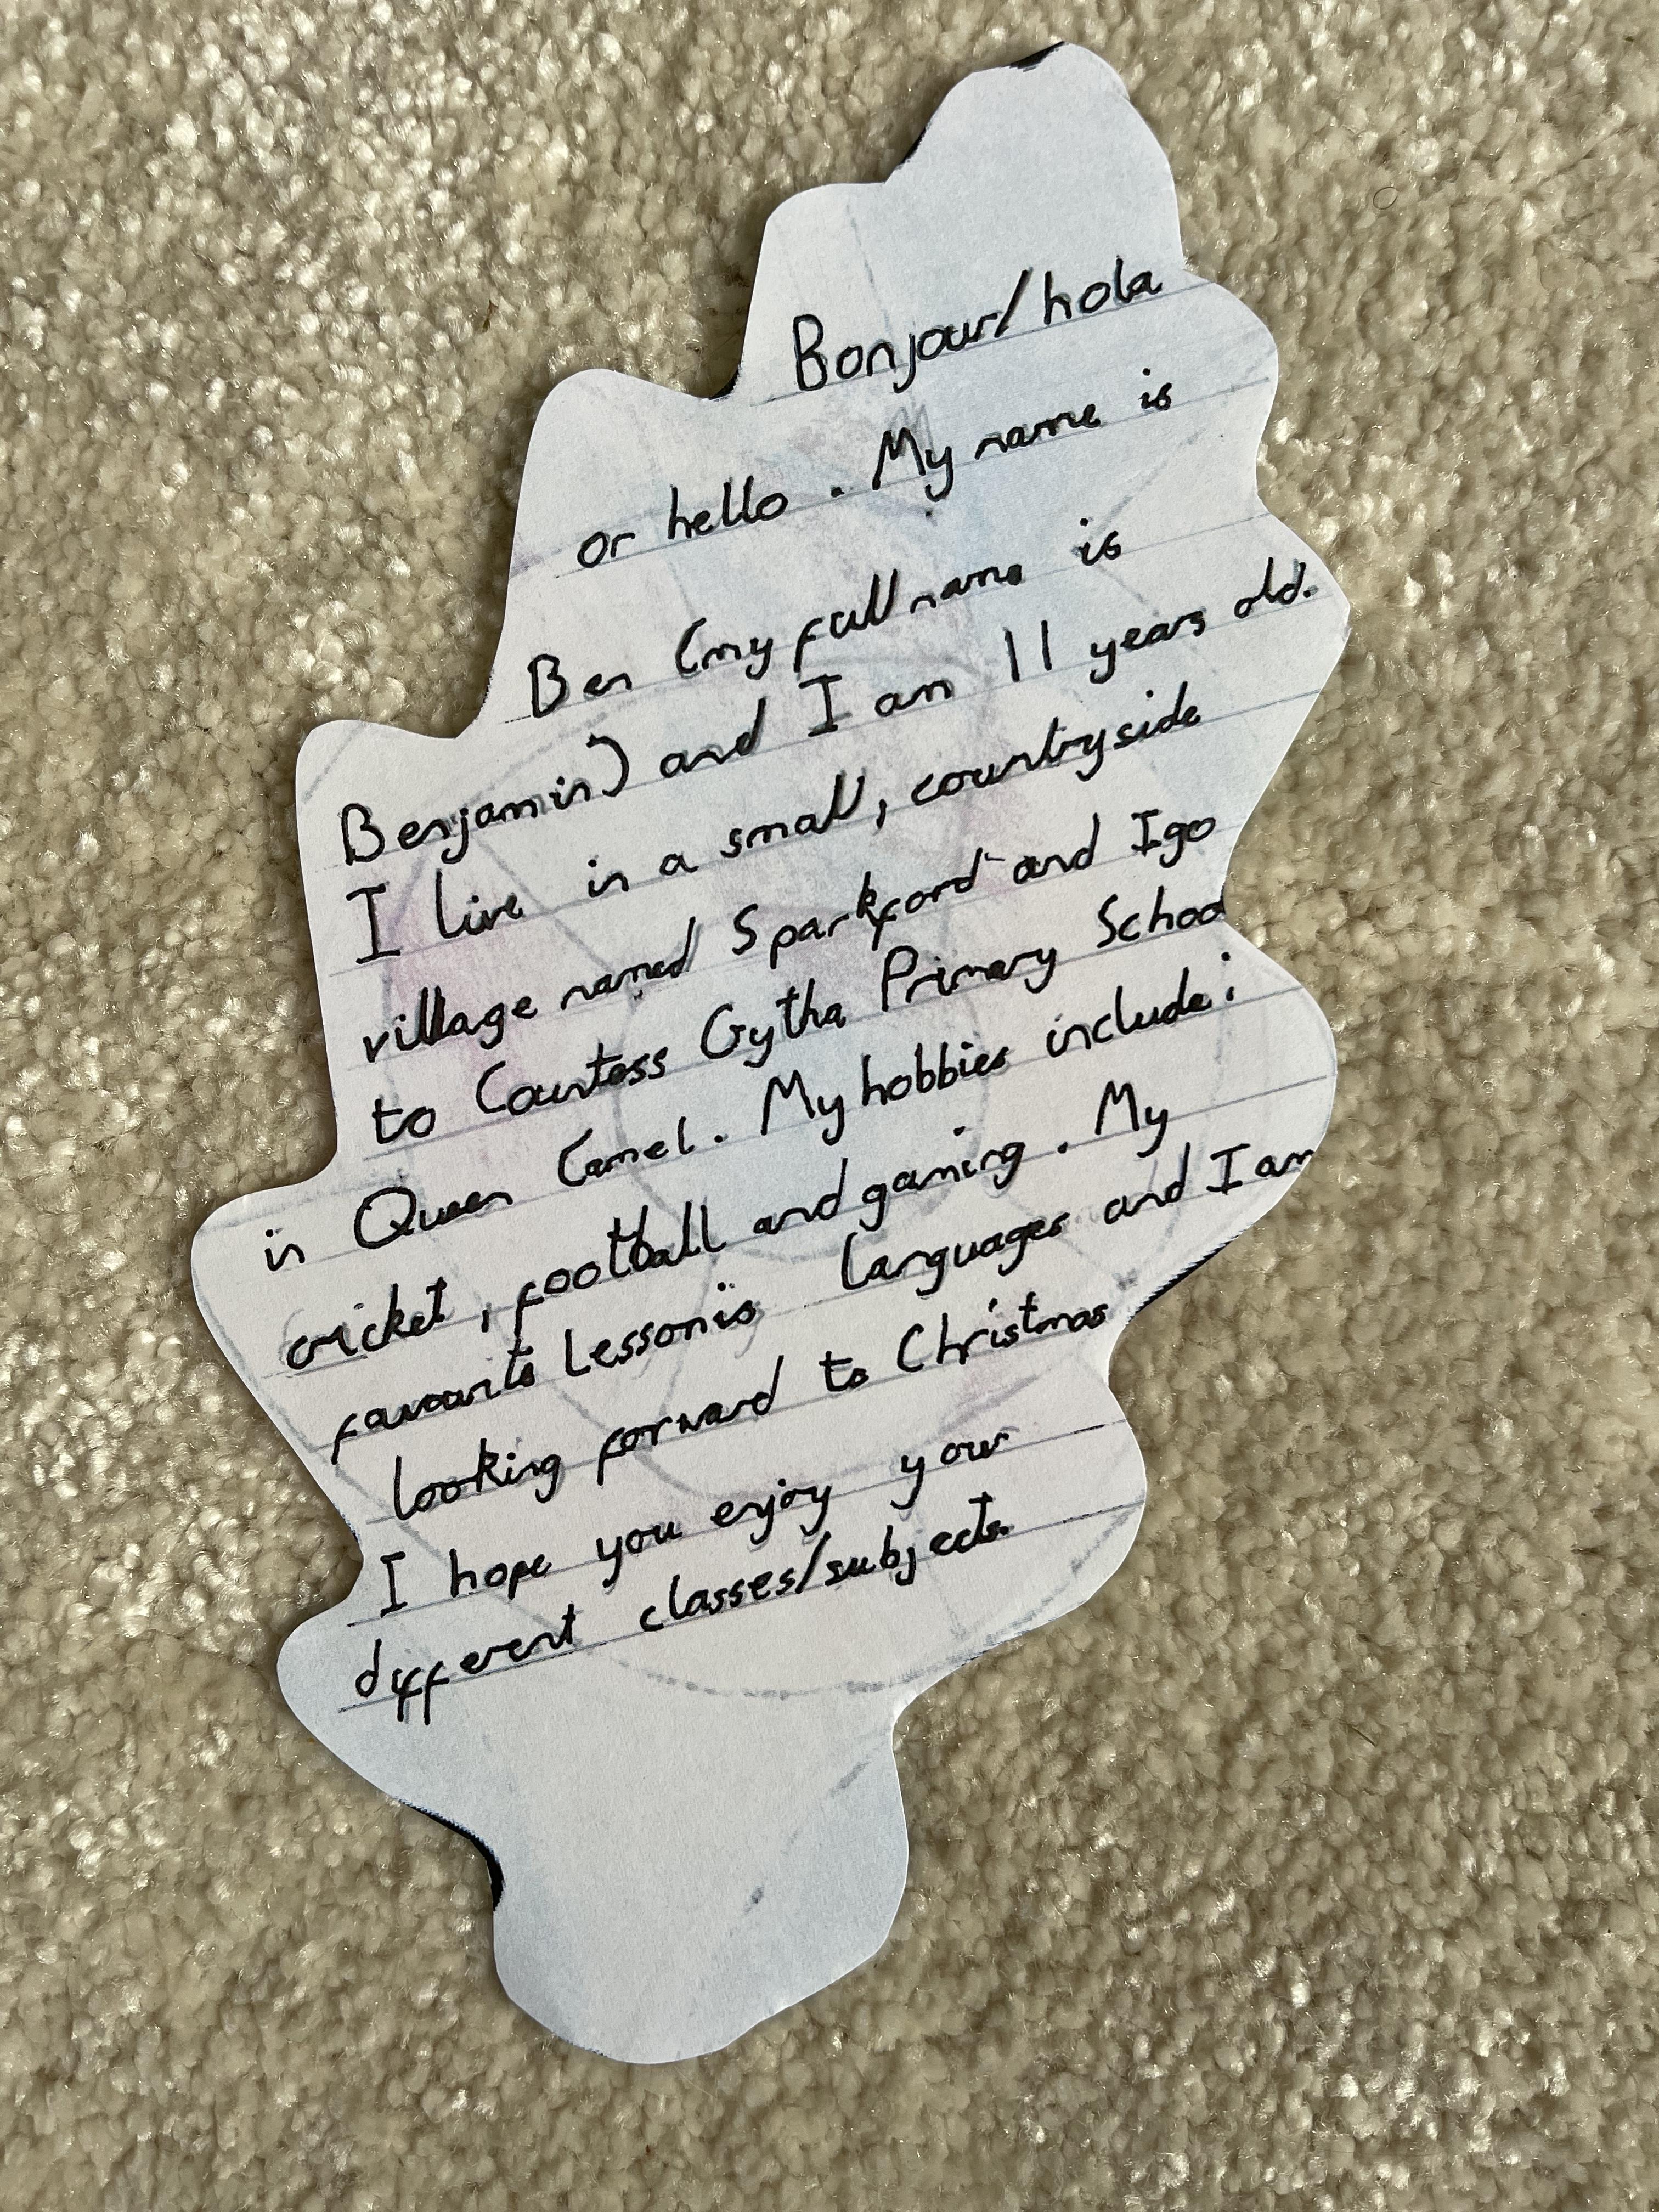 Bonjour/hola
or hello. My name is
Ben (my full name is
Benjamin) and I am 11 years old.
I live in a small, countryside
village named Sparkford and I go
to Countess Gytha Primary School
in Queen Camel. My hobbies include:
cricket, football and gaming. My
favourite lesson is languages and I am
looking forward to Christmas
I hope you enjoy your
different classes/subjects.